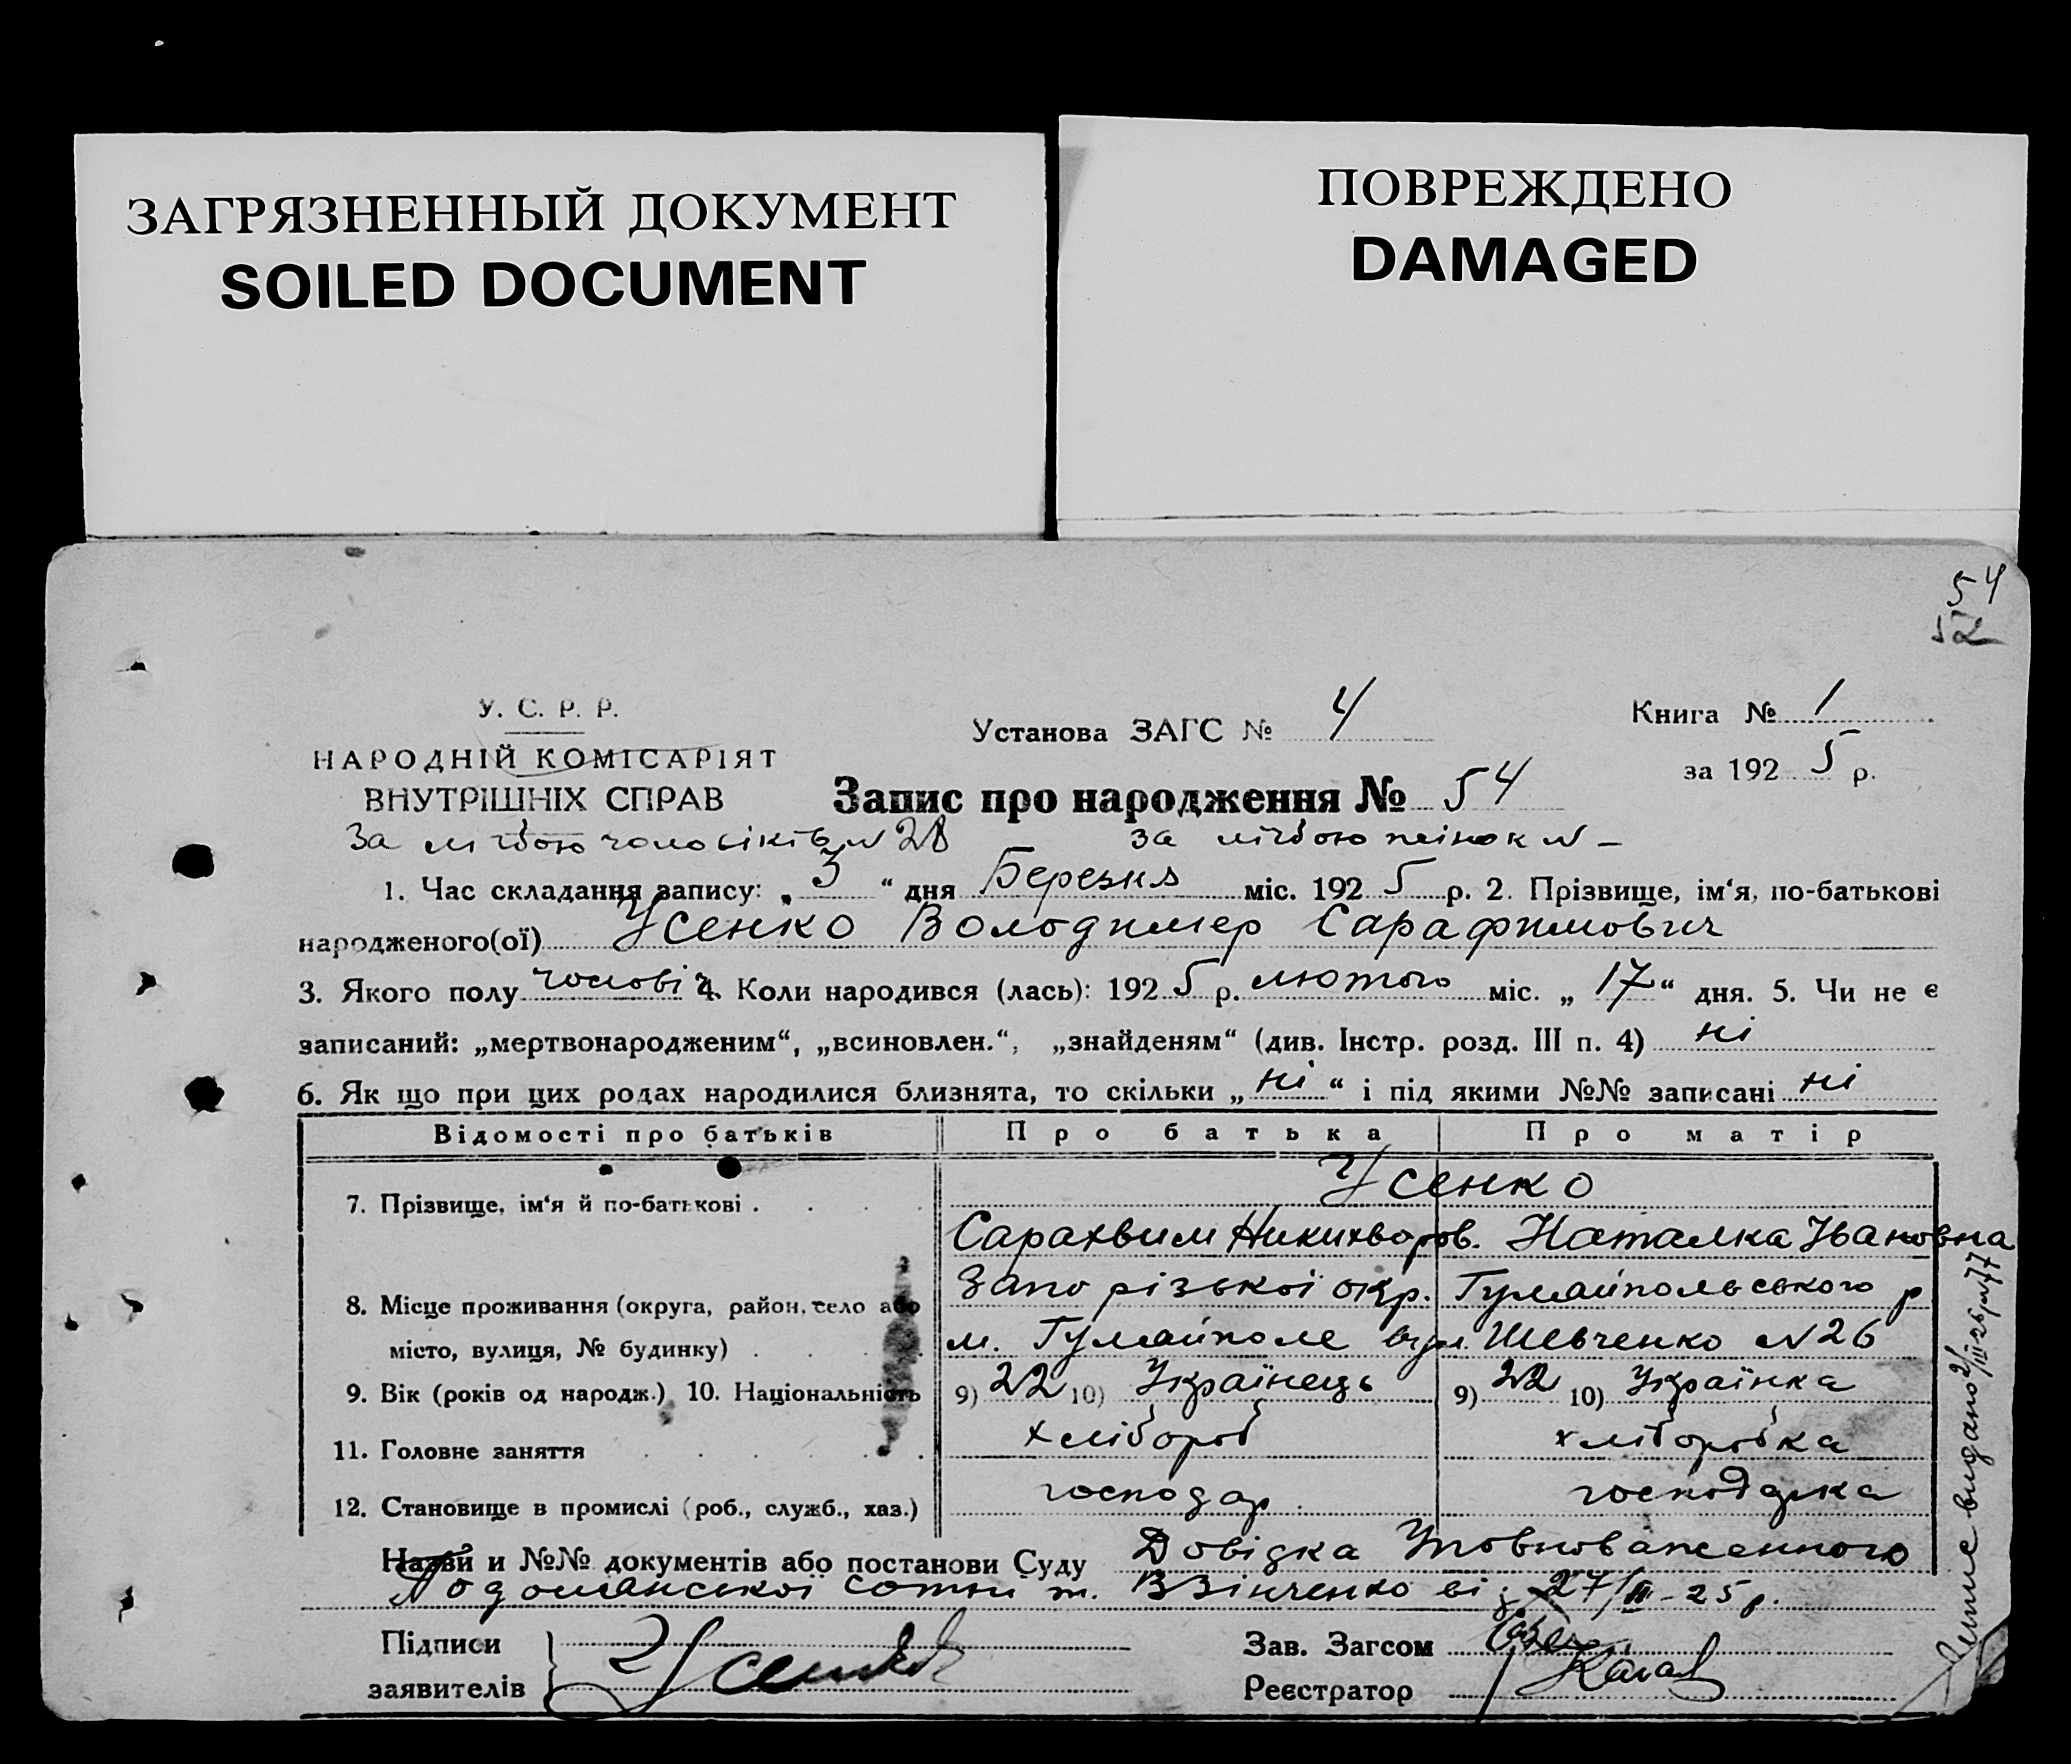 ЗАГРЯЗНЕННЫЙ ДОКУМЕНТ
SOILED DOCUMENT
ПОВРЕЖДЕНО
DAMAGED
54
52
У. С. Р. Р.
НАРОДНІЙ КОМІСАРІЯТ
ВНУТРІШНІХ СПРАВ
Установа ЗАГС № 4
Книга № 1
за 1925 р.
Запис про народження № 54
За лічбою чоловіків N 28 за лічбою жінок N –
1. Час складання запису: „3“ дня Березня міс. 1925 р. 2. Прізвище, ім‘я, по-батькові
народженого(ої) Усенко Володимер Сарафимович
3. Якого полу чоловіч. 4. Коли народився (лась): 1925 р. лютого міс. „17“ дня. 5. Чи не є
записаний: „мертвонародженим“, „всиновлен.“, „знайденям“ (див. Інстр. розд. III п. 4) ні
6. Як що при цих родах народилися близнята, то скільки „ні“ і під якими №№ записані ні
Відомості про батьків Про батька Про матір
Усенко
7. Прізвище, ім‘я й по-батькові
Сарахвим Никихворов. Наталка Івановна
8. Місце проживання (округа, район, село або Запорізької окр. Гуляйпольського р
місто, вулиця, № будинку) м. Гуляйполе вул. Шевченко N 26
9. Вік (років од народж.) 10. Національність 9) 22 10) Українець 9) 22 10) Українка
11. Головне заняття хлібороб хліборобка
12. Становище в промислі (роб., служб., хаз.) господар господарка
Назви и №№ документів або постанови Суду Довідка Уповноваженного
сотни т. від 27/II-25 р.
Підписи
заявителів
Усенко
Зав. Загсом
Реєстратор
видано 2/III-26 р.